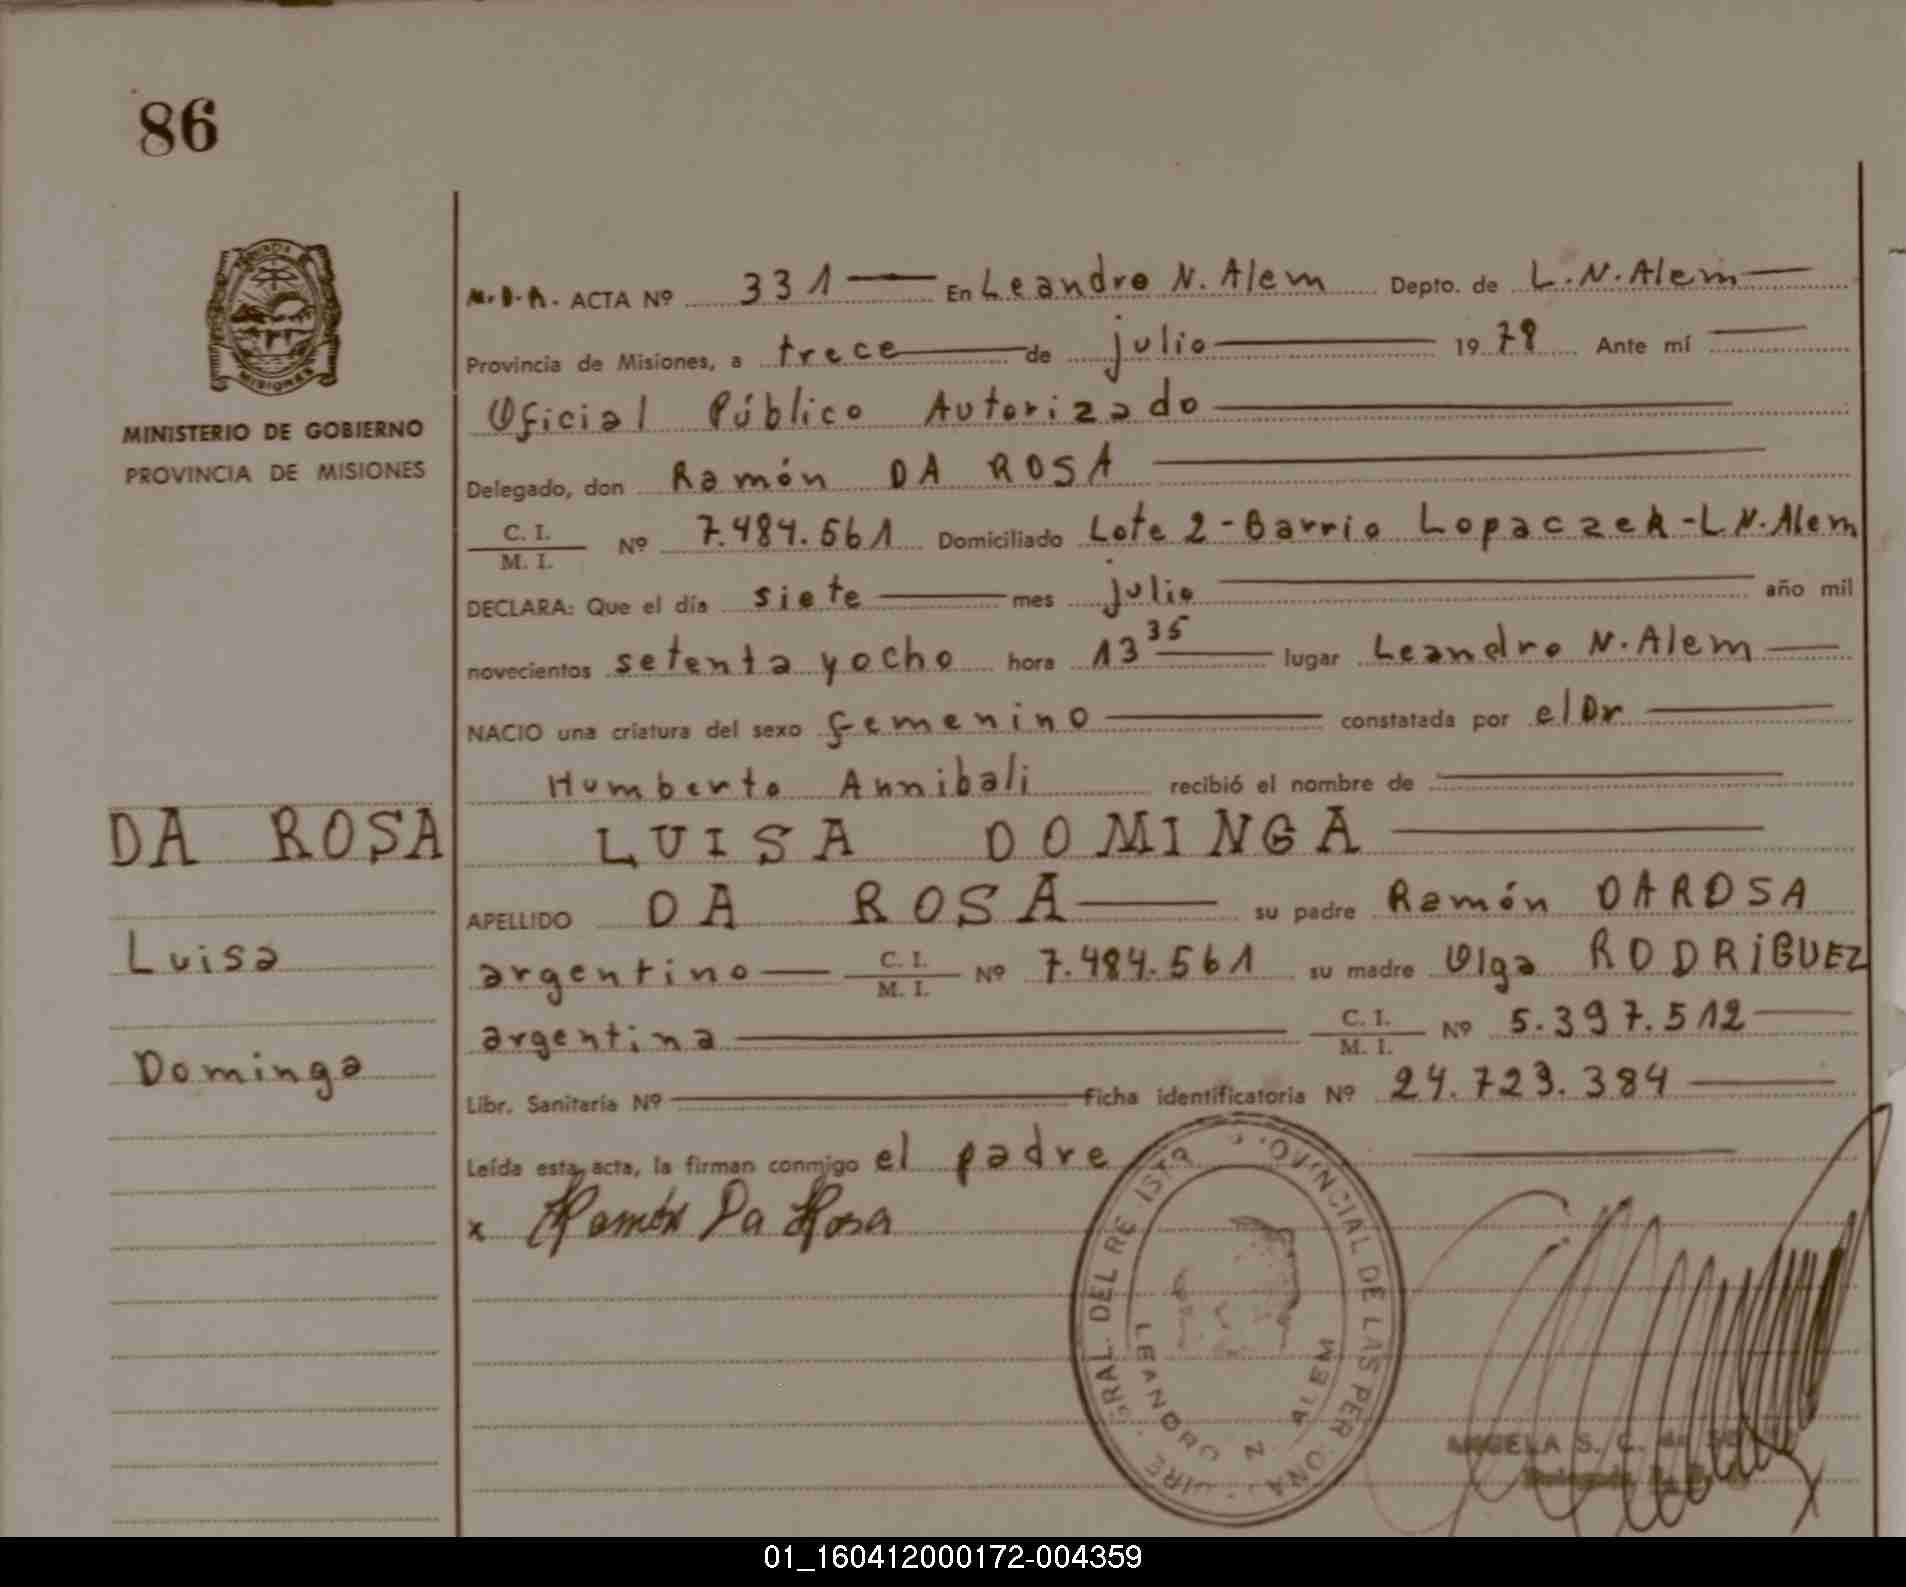 86
MISIONES
MINISTERIO DE GOBIERNO
PROVINCIA DE MISIONES
DA ROSA
Luisa
Dominga
M.D.A. ACTA Nº 331 En Leandro N. Alem Depto. de L.N. Alem
Provincia de Misiones, a trece de julio 19 78 Ante mí
Oficial Público Autorizado
Delegado, don Ramón DA ROSA
C. I. / M. I. Nº 7.484.561 Domiciliado Lote 2 - Barrio Lopaczek - L N. Alem
DECLARA: Que el día siete mes julio año mil
novecientos setenta y ocho hora 13 35 lugar Leandro N. Alem
NACIO una criatura del sexo femenino constatada por el Dr
Humberto Annibali recibió el nombre de
LUISA DOMINGA
APELLIDO DA ROSA su padre Ramón DA ROSA
argentino C. I. / M. I. Nº 7.484.561 su madre Olga RODRIGUEZ
argentina C. I. / M. I. Nº 5.397.512
Libr. Sanitaria Nº Ficha identificatoria Nº 24.723.384
Leída esta acta, la firman conmigo el padre
x Ramón Da Rosa
GRAL. DEL RE ISTR OVINCIAL DE LAS PER ONA
LEANDRO N. ALEM
ANGELA S. C. de
01_160412000172-004359